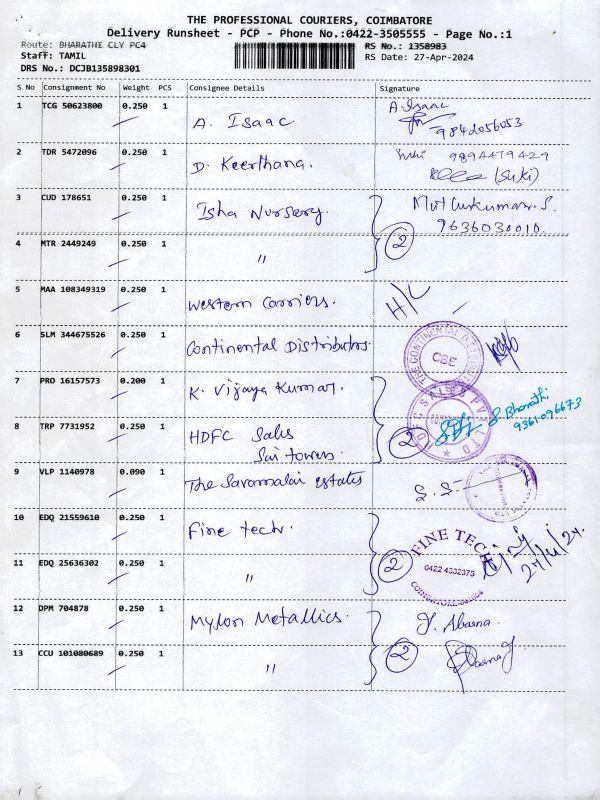 THE PROFESSIONAL COURIERS, COIMBATORE
Delivery Runsheet - PCP - Phone No.:0422-3505555 - Page No.:1
Route: BHARATHI CLY PC4 RS No.: 1358983
Staff: TAMIL RS Date: 27-Apr-2024
DRS No.: DCJB135898301
S No Consignment No Weight PCS Consignee Details Signature
1 TCG 50623800 0.250 1 A. Isaac A. Isaac
9842056053
2 TDR 5472096 0.250 1 D. Keerthana. Suki 9894479429
(Suki)
3 CUD 178651 0.250 1 Isha Nursery. Muthukumar. S.
9636030010.
4 MTR 2449249 0.250 1 " 2
5 MAA 108349319 0.250 1 Western Carriers. H/L
6 SLM 344675526 0.250 1 Continental Distributors. THE CONTINENTAL CBE
7 PRO 16157573 0.200 1 K. Vijaya Kumar.
8 TRP 7731952 0.250 1 HDFC Sales 2 HDFC SALES PVT LTD S Bharathi
Sai towers 9361096673
9 VLP 1140978 0.090 1 The Savamalai estates S. S
10 EDQ 21559610 0.250 1 Fine tech. FINE TECH
11 EDQ 25636302 0.250 1 " 2 0422 4332375 27/4/24.
COIMBATORE
12 DPM 704878 0.250 1 Mylon Metallics. J. Abarna
13 CCU 101080689 0.250 1 " 2